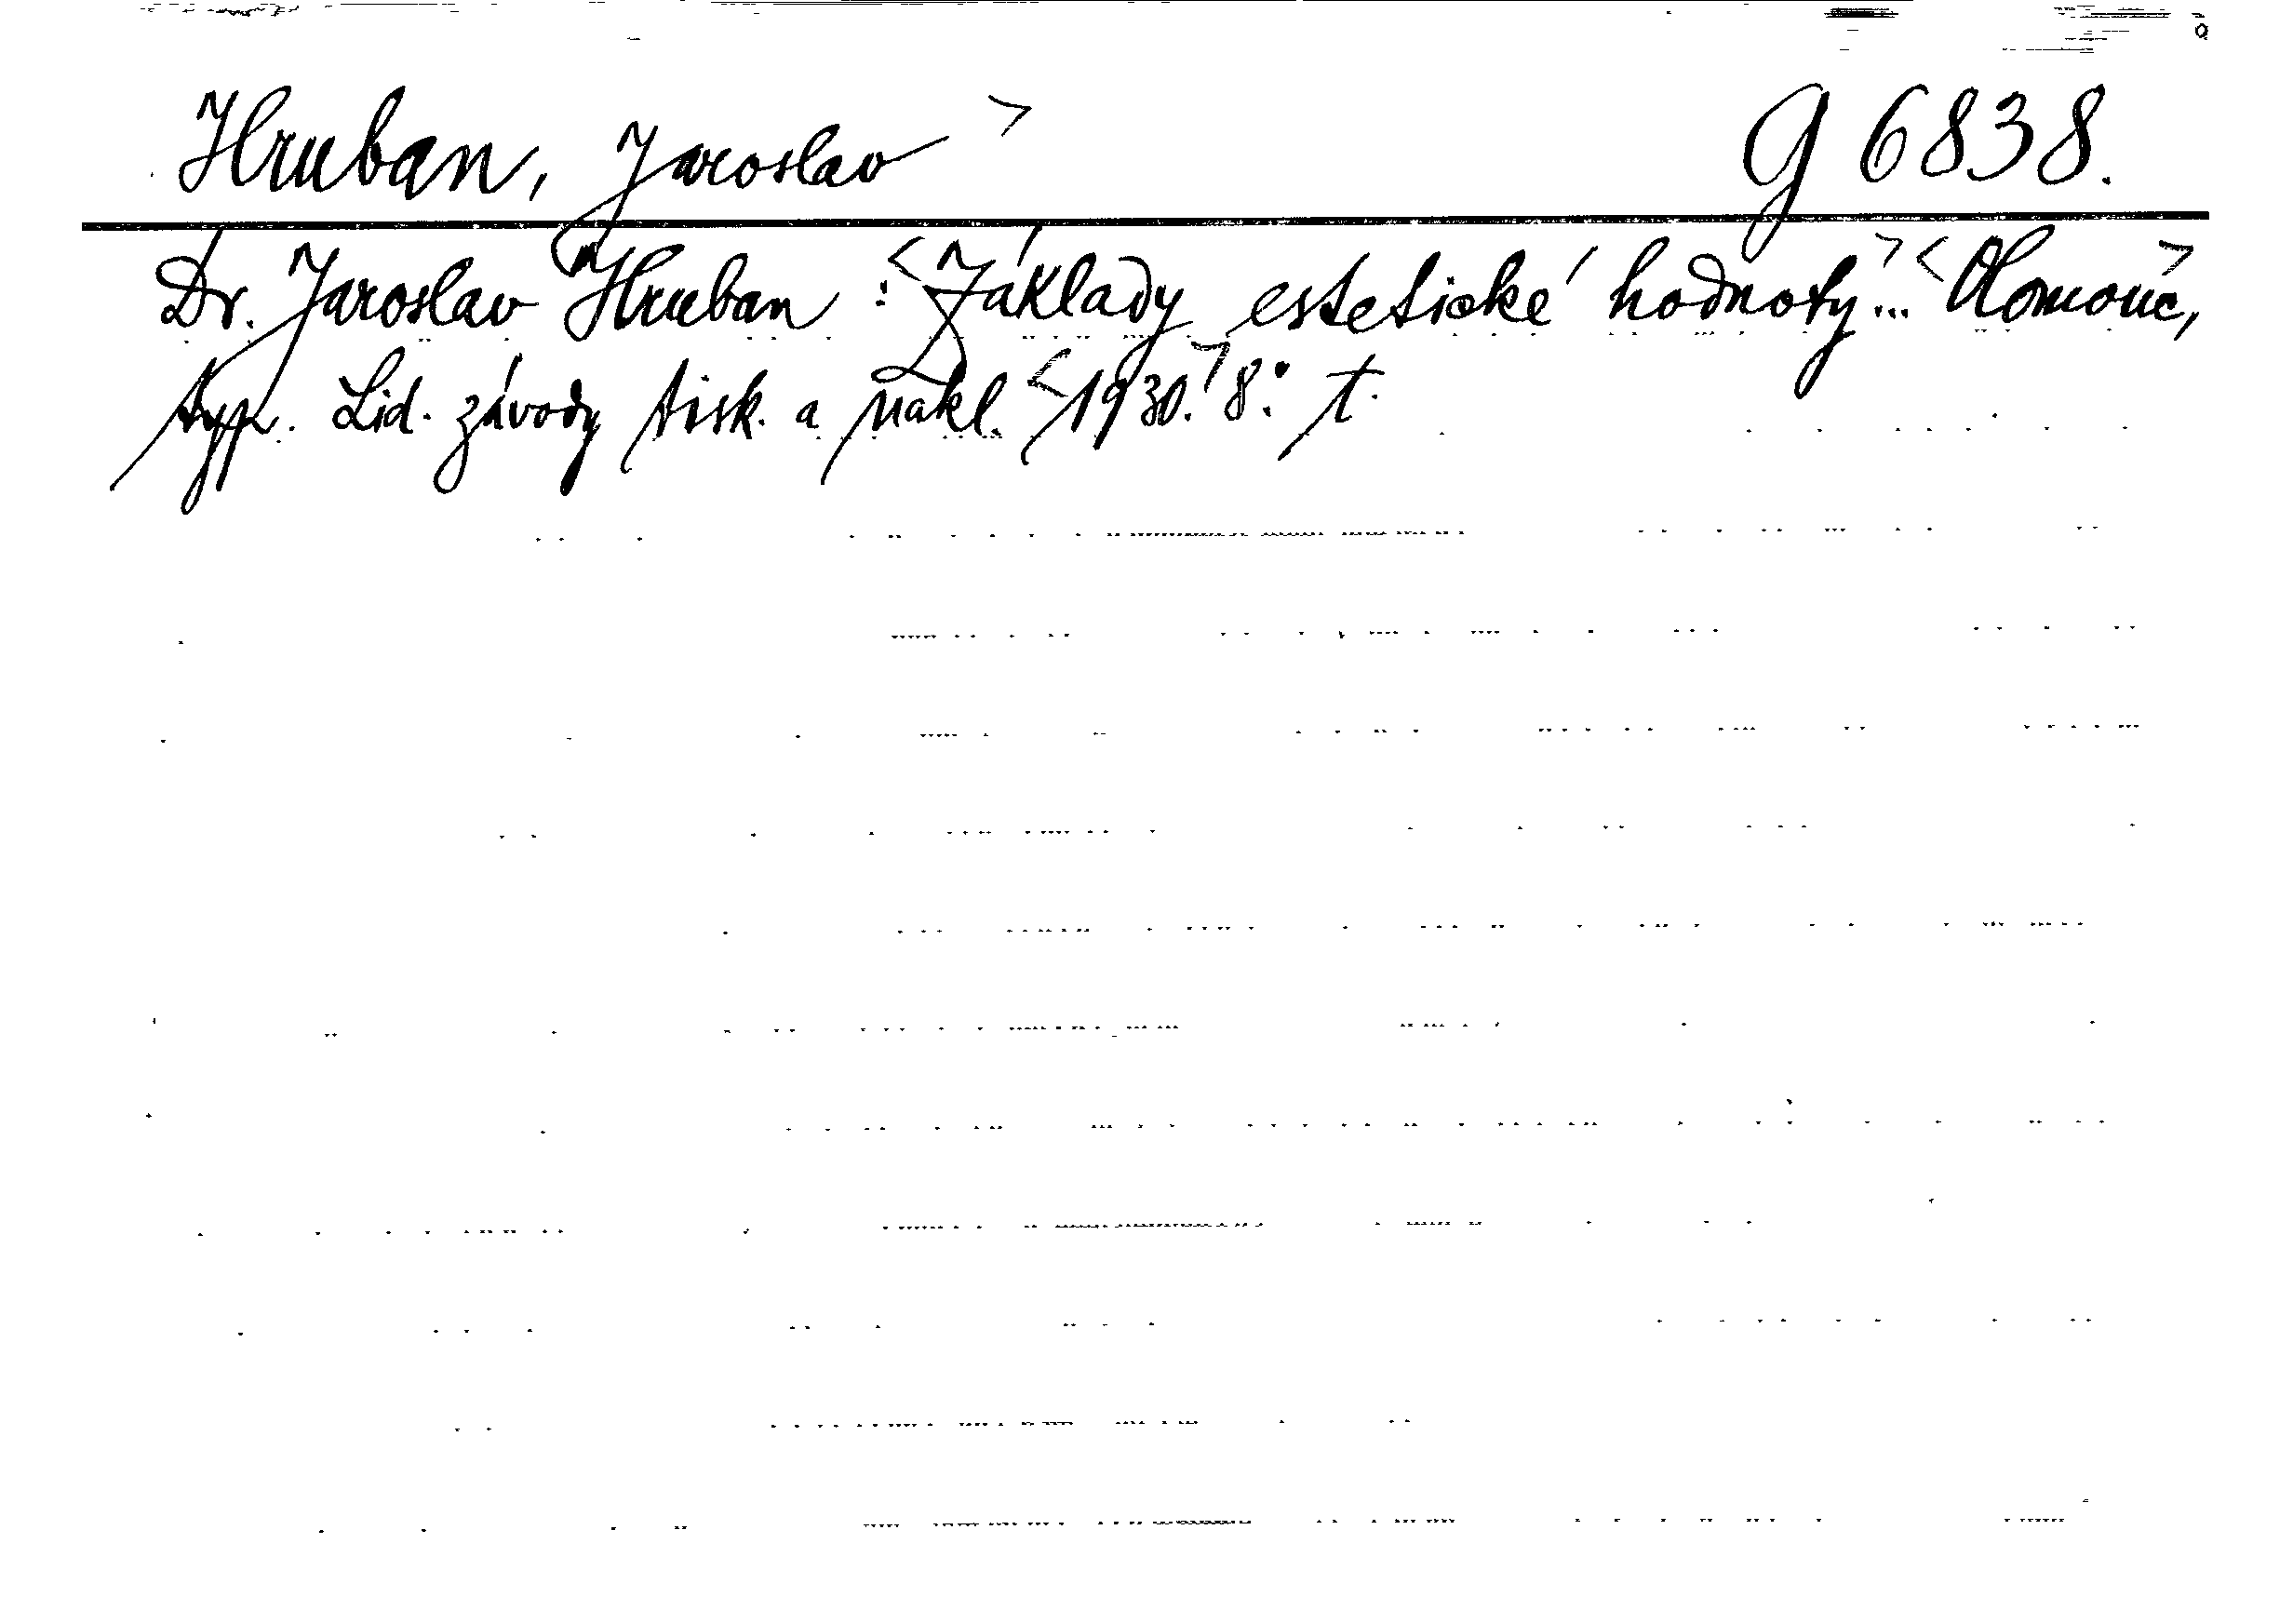 Hruban, Jaroslav > G 6838.
Dr. Jaroslav Hruban : <Základy estetické hodnoty...> <Olomouc,>
typ. Lid. závody tisk. a nakl. <1930.> 8.° t.